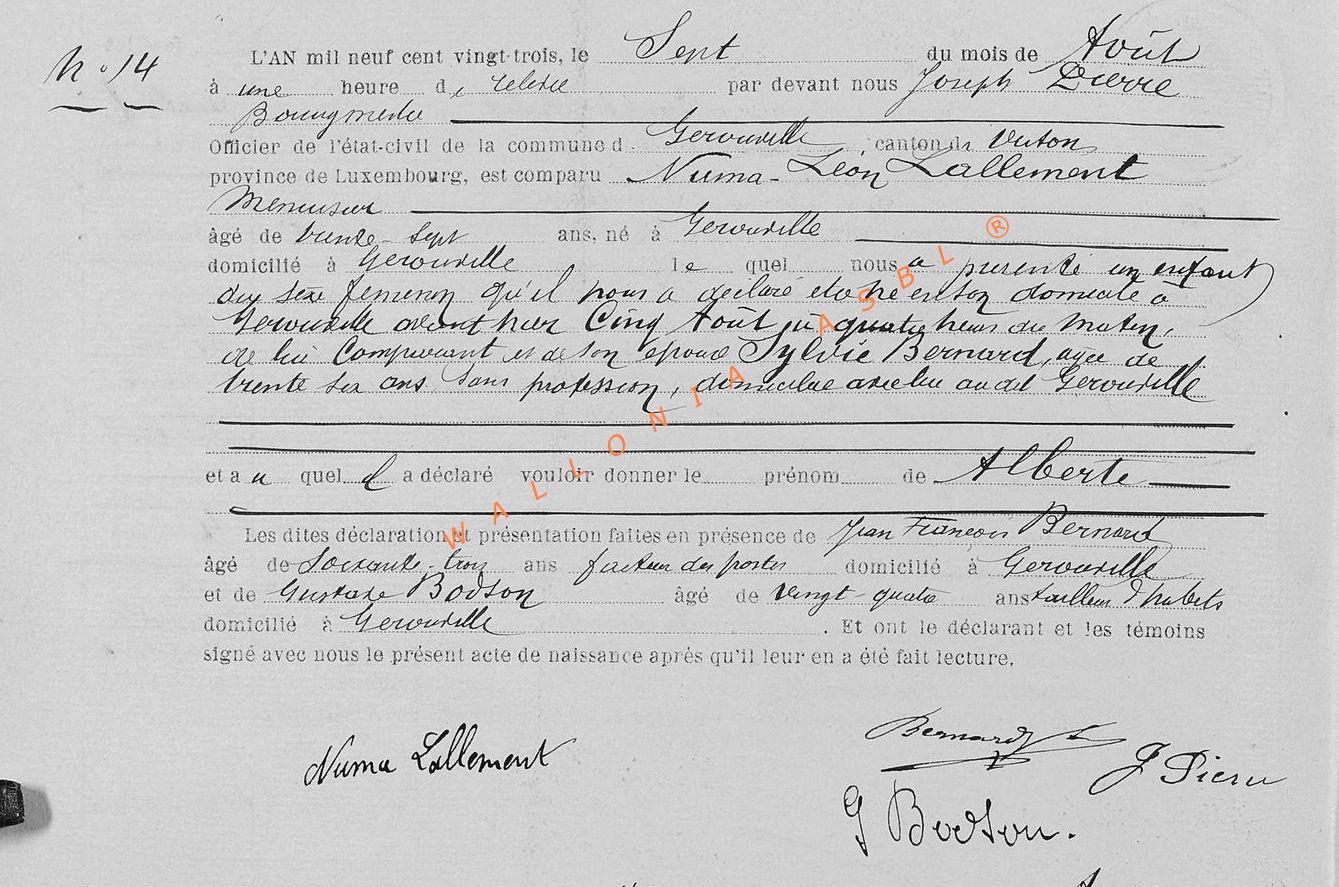 N° 14
L'AN mil neuf cent vingt-trois, le Sept du mois de Août
à une heure de relevée par devant nous Joseph Pierre
Bourgmestre
Officier de l'état-civil de la commune d Gerouville, canton de Virton
province de Luxembourg, est comparu Numa-Léon Lallement
Menuisier
âgé de trente-sept ans, né à Gerouville
domicilié à Gerouville lequel nous a présenté un enfant
du sexe féminin qu'il nous a déclaré être né en son domicile à
Gerouville avant hier Cinq Août à quatre heures du matin,
de lui Comparant et de son épouse Sylvie Bernard, agée de
trente six ans Sans profession, domiciliée avec lui audit Gerouville
et auquel il a déclaré vouloir donner le prénom de Alberte
Les dites déclaration et présentation faites en présence de Jean François Bernard
âgé de Soixante-trois ans facteur des postes domicilié à Gerouville
et de Gustave Bodson âgé de vingt-quatre ans tailleur d'habits
domicilié à Gerouville. Et ont le déclarant et les témoins
signé avec nous le présent acte de naissance après qu'il leur en a été fait lecture.
Numa Lallement
Bernard
J Pierre
G Bodson.
WALLONIA ASBL ®